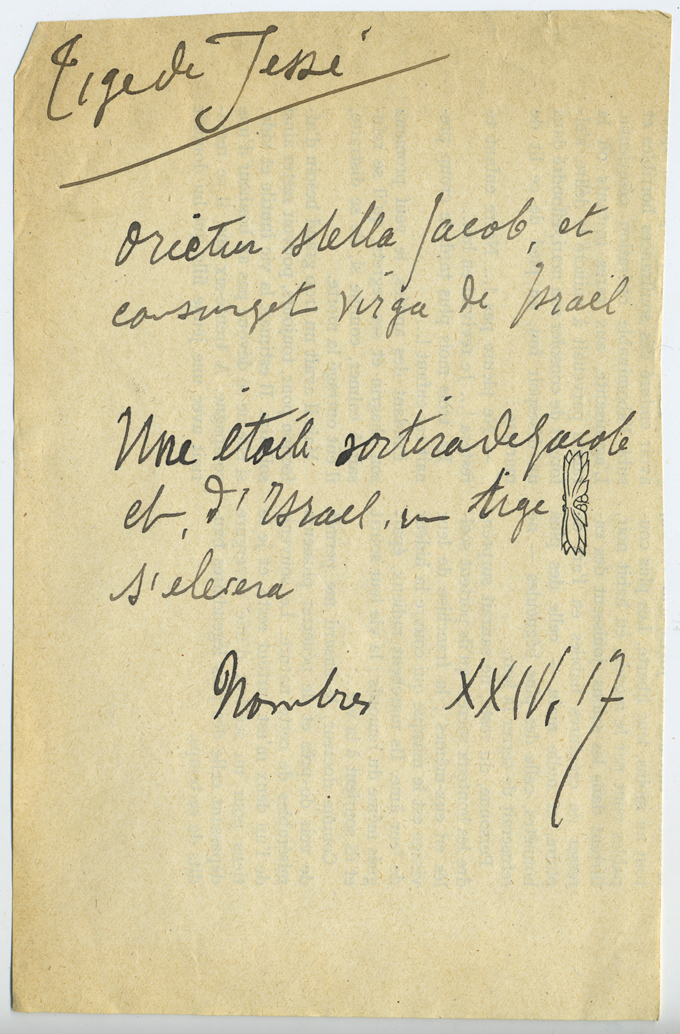 Tige de Jessé
Orietur stella Jacob, et
consurget virga de Israël
Une étoile sortira de Jacob
et, d'Israel, un tige
s'elevera
Nombres XXIV, 17